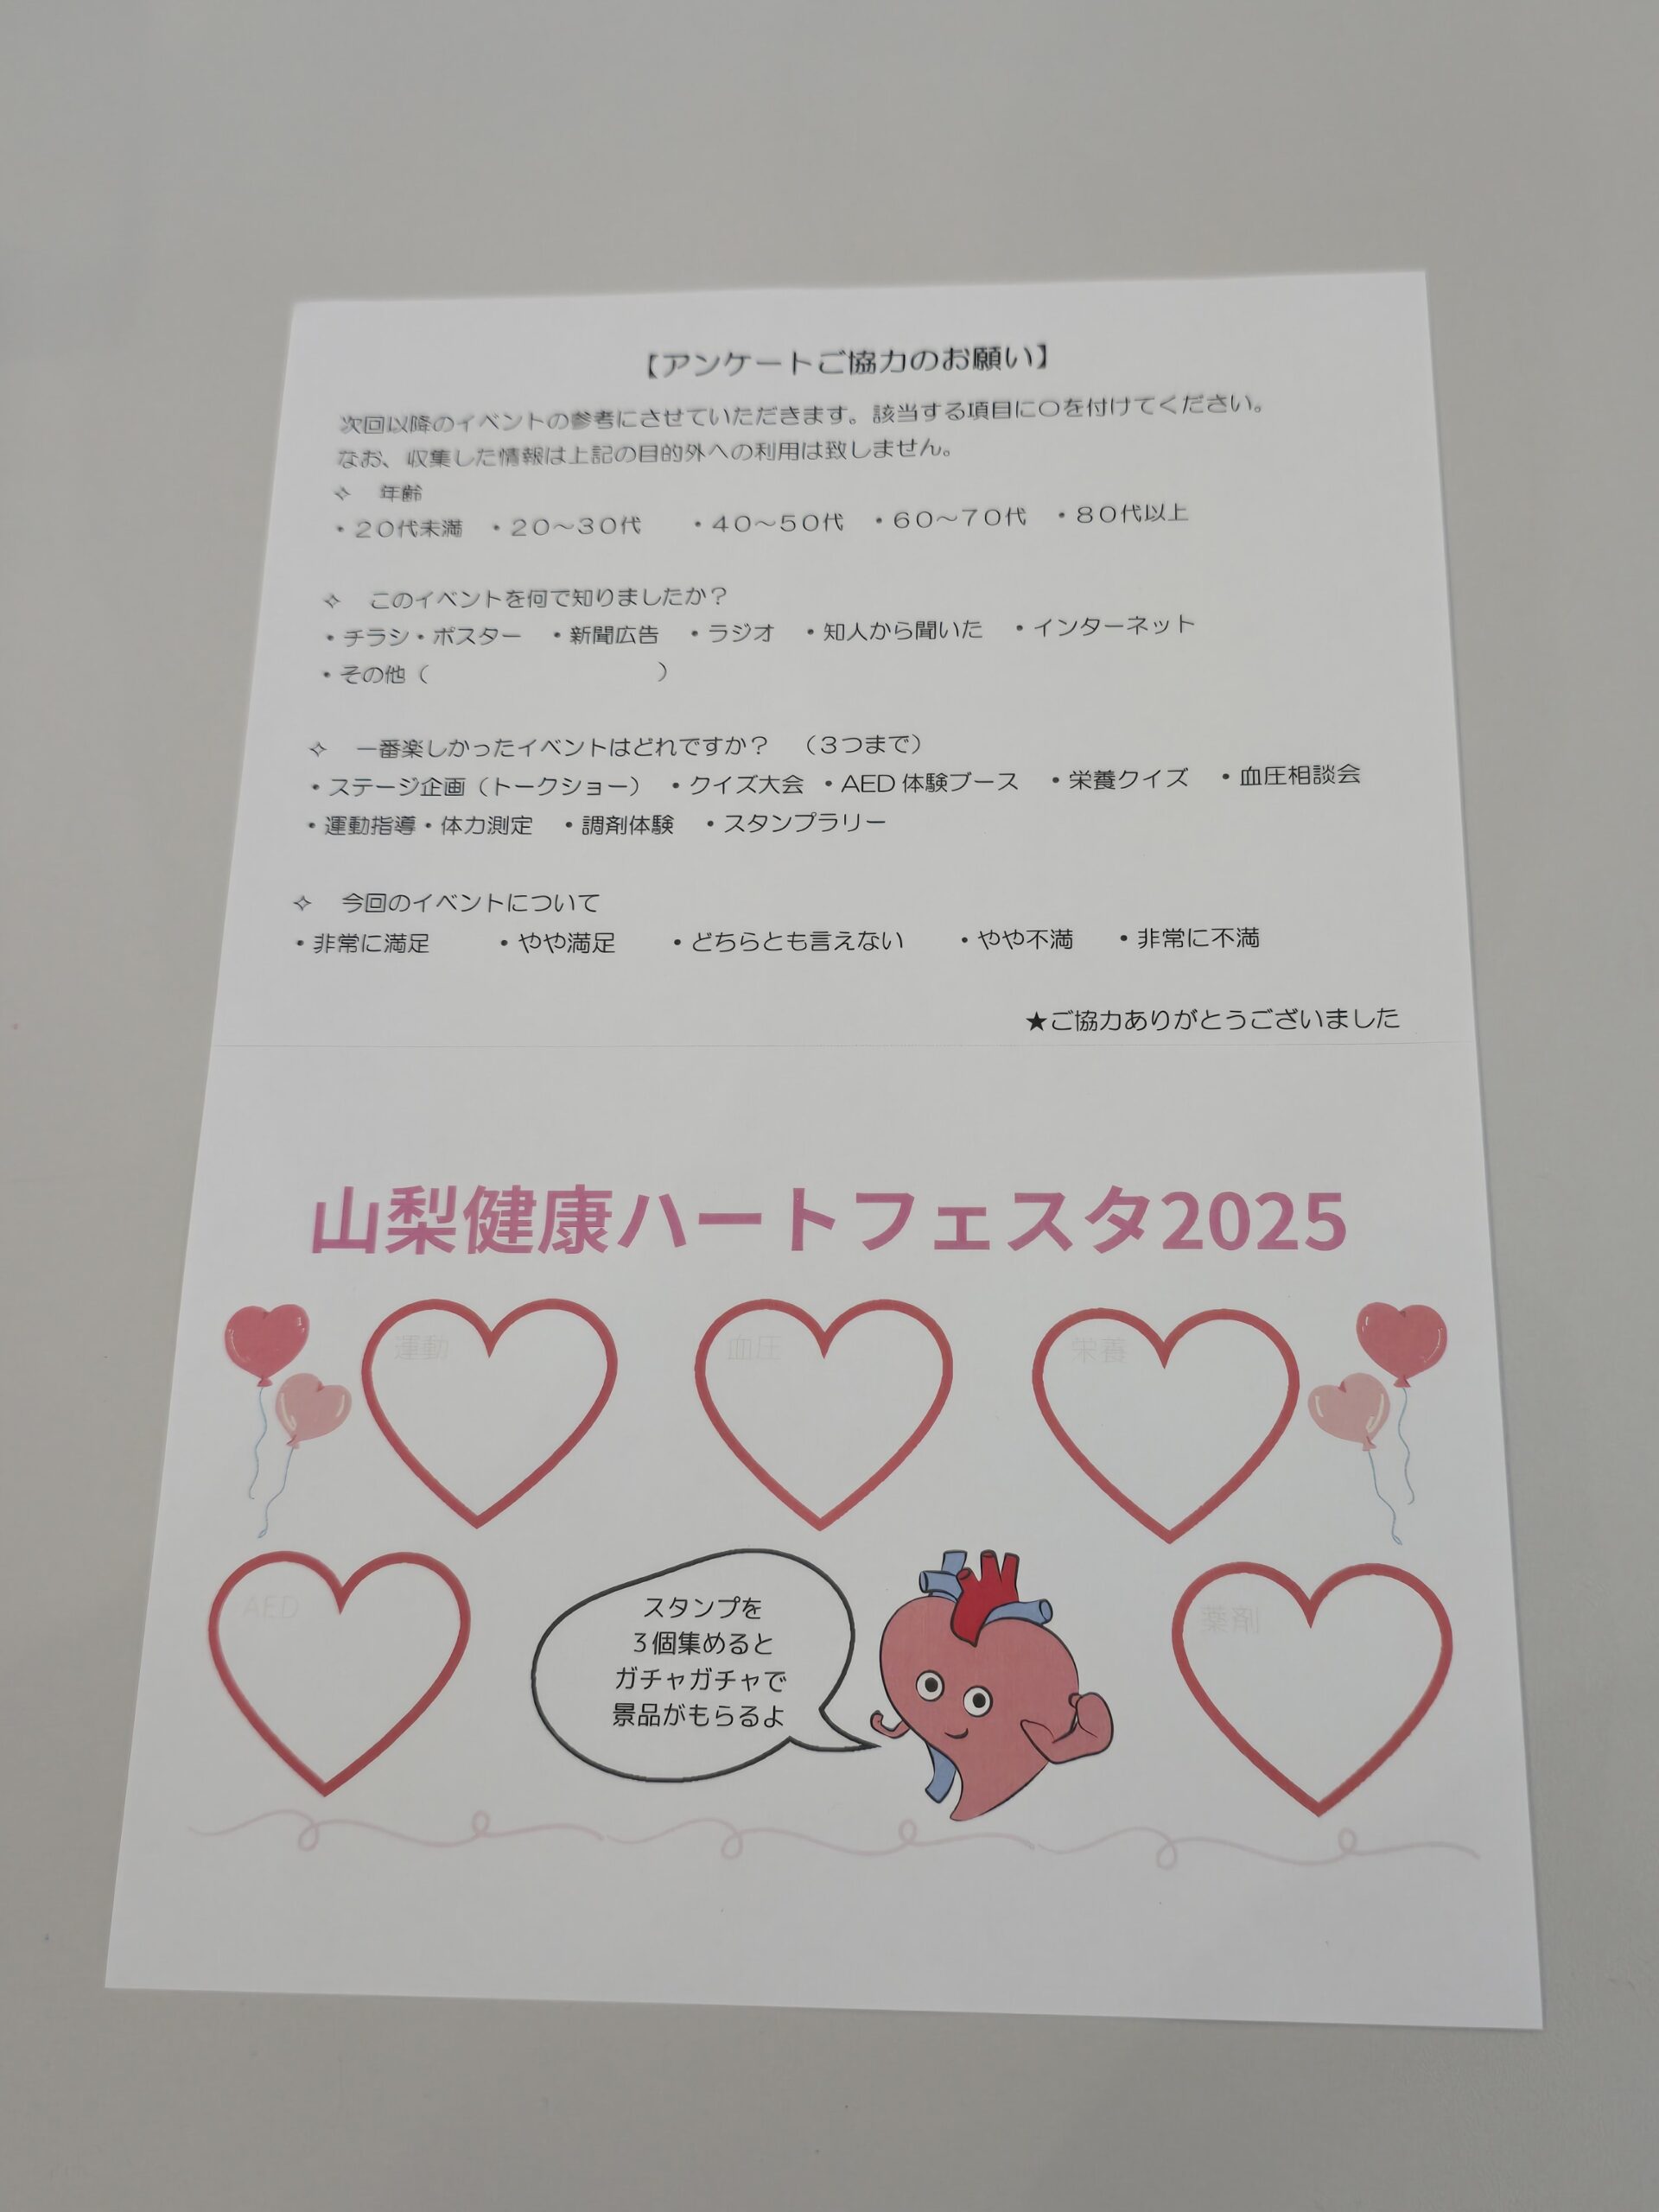 【アンケートご協力のお願い】
次回以降のイベントの参考にさせていただきます。該当する項目に〇を付けてください。
なお、収集した情報は上記の目的外への利用は致しません。
✧　年齢
・２０代未満　・２０～３０代　　・４０～５０代　・６０～７０代　・８０代以上
✧　このイベントを何で知りましたか？
・チラシ・ポスター　・新聞広告　・ラジオ　・知人から聞いた　・インターネット
・その他（　　　　　　　　　　）
✧　一番楽しかったイベントはどれですか？　（３つまで）
・ステージ企画（トークショー）　・クイズ大会　・AED 体験ブース　・栄養クイズ　・血圧相談会
・運動指導・体力測定　・調剤体験　・スタンプラリー
✧　今回のイベントについて
・非常に満足　　・やや満足　　・どちらとも言えない　　・やや不満　・非常に不満
★ご協力ありがとうございました
山梨健康ハートフェスタ2025
運動　血圧　栄養
AED
スタンプを
３個集めると
ガチャガチャで
景品がもらるよ
薬剤